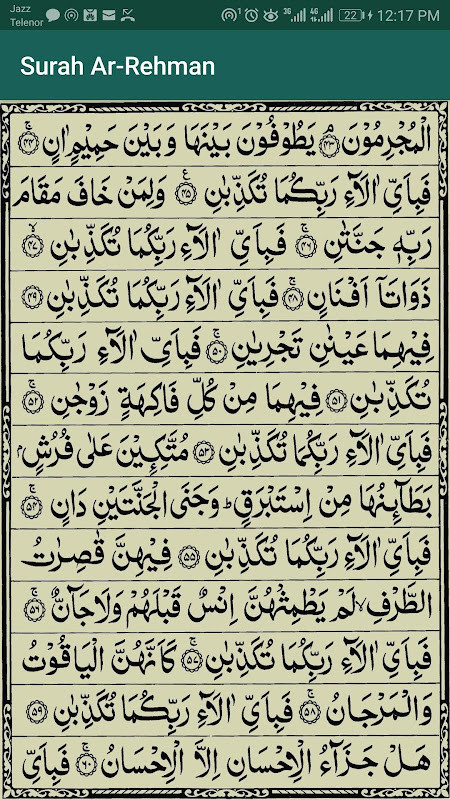 Jazz
Telenor
3G 4G 22 12:17 PM
Surah Ar-Rehman
الْمُجْرِمُوْنَ ۘ﴿۴۳﴾ يَطُوْفُوْنَ بَيْنَهَا وَبَيْنَ حَمِيْمٍ اٰنٍ ۚ﴿۴۴﴾
فَبِاَىِّ اٰلَآءِ رَبِّكُمَا تُكَذِّبٰنِ ﴿۴۵﴾ۧ وَلِمَنْ خَافَ مَقَامَ
رَبِّهٖ جَنَّتٰنِ ۚ﴿۴۶﴾ فَبِاَىِّ اٰلَآءِ رَبِّكُمَا تُكَذِّبٰنِ ۙ﴿۴۷﴾
ذَوَاتَاۤ اَفْنَانٍ ۚ﴿۴۸﴾ فَبِاَىِّ اٰلَآءِ رَبِّكُمَا تُكَذِّبٰنِ ﴿۴۹﴾
فِيْهِمَا عَيْنٰنِ تَجْرِيٰنِ ۚ﴿۵۰﴾ فَبِاَىِّ اٰلَآءِ رَبِّكُمَا
تُكَذِّبٰنِ ﴿۵۱﴾ فِيْهِمَا مِنْ كُلِّ فَاكِهَةٍ زَوْجٰنِ ۚ﴿۵۲﴾
فَبِاَىِّ اٰلَآءِ رَبِّكُمَا تُكَذِّبٰنِ ﴿۵۳﴾ مُتَّكِـِٕيْنَ عَلٰى فُرُشٍۭ
بَطَآئِنُهَا مِنْ اِسْتَبْرَقٍ ؕ وَجَنَى الْجَنَّتَيْنِ دَانٍ ۚ﴿۵۴﴾
فَبِاَىِّ اٰلَآءِ رَبِّكُمَا تُكَذِّبٰنِ ﴿۵۵﴾ فِيْهِنَّ قٰصِرٰتُ
الطَّرْفِ ۙ لَمْ يَطْمِثْهُنَّ اِنْسٌ قَبْلَهُمْ وَلَا جَآنٌّ ۚ﴿۵۶﴾
فَبِاَىِّ اٰلَآءِ رَبِّكُمَا تُكَذِّبٰنِ ۚ﴿۵۷﴾ كَاَنَّهُنَّ الْيَاقُوْتُ
وَالْمَرْجَانُ ۚ﴿۵۸﴾ فَبِاَىِّ اٰلَآءِ رَبِّكُمَا تُكَذِّبٰنِ ﴿۵۹﴾
هَلْ جَزَآءُ الْاِحْسَانِ اِلَّا الْاِحْسَانُ ۚ﴿۶۰﴾ فَبِاَىِّ